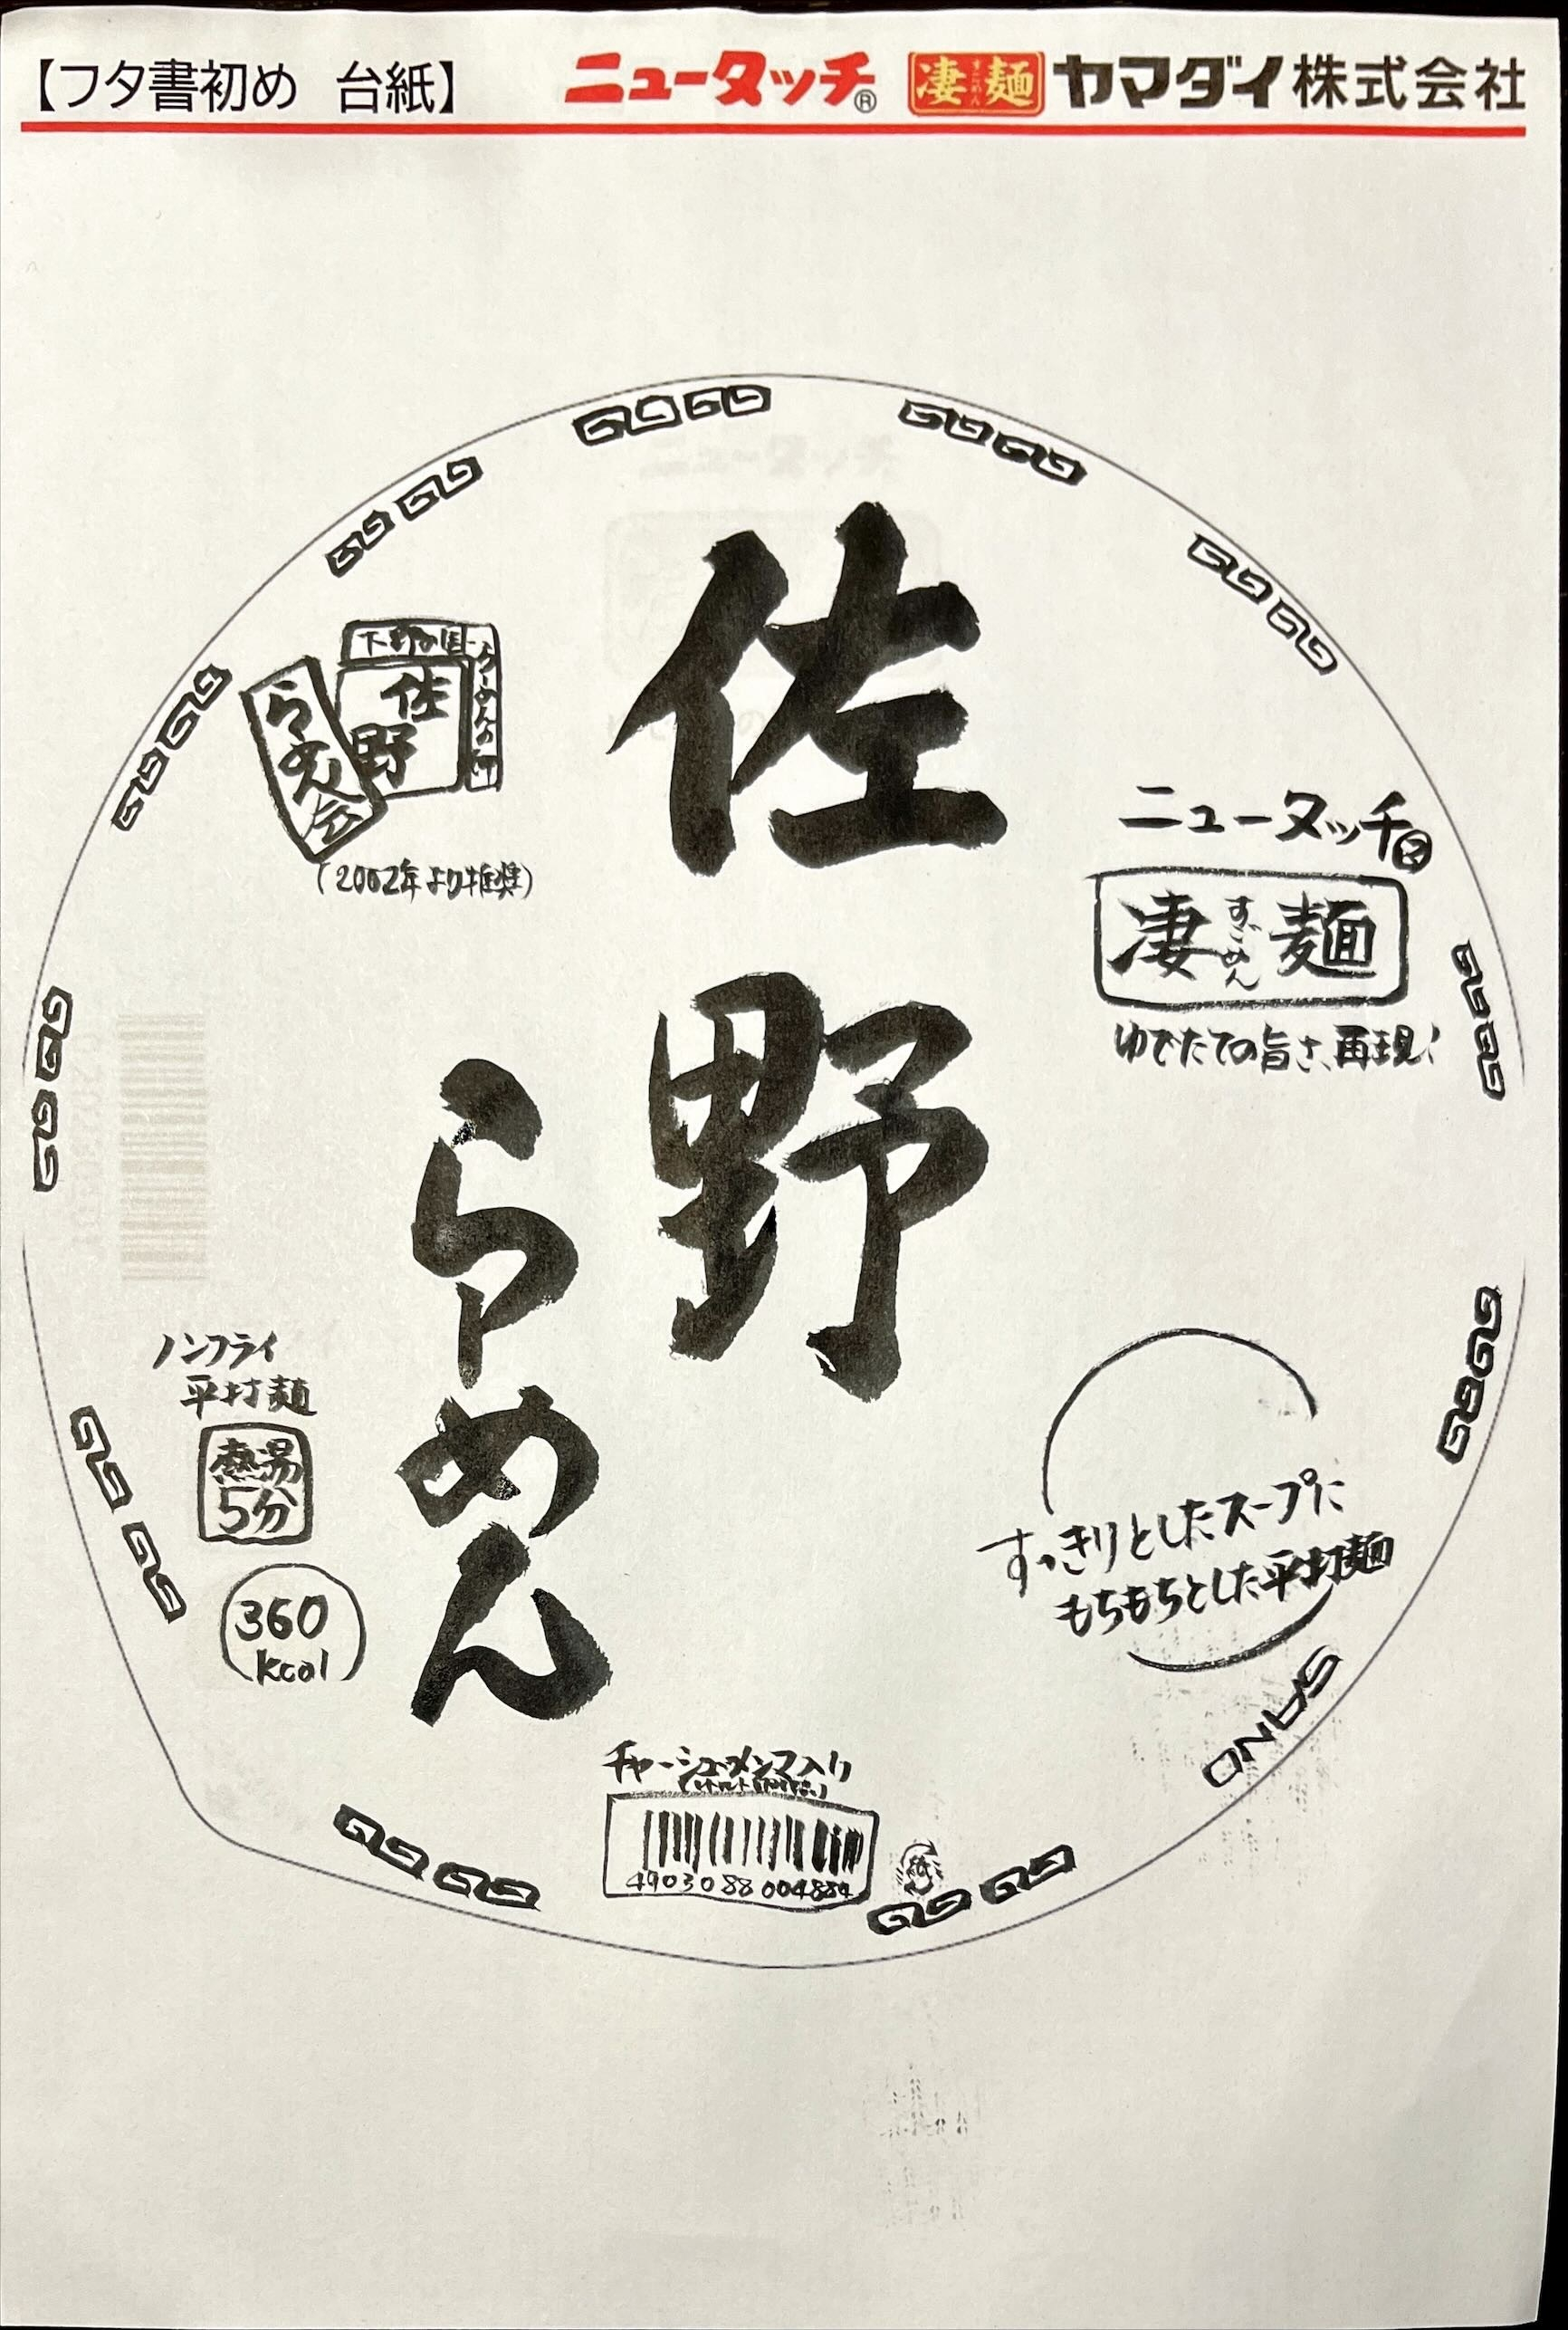 【フタ書初め 台紙】
ニュータッチ® 凄麺 すごめん ヤマダイ株式会社
佐野
らーめん
ニュータッチ®
凄麺
すごめん
ゆでたての旨さ、再現!
下野の国
らーめんの
佐野
らーめん会
(2002年より推奨)
ノンフライ
平打麺
熱湯
5分
360
kcal
すっきりとしたスープに
もちもちとした平打麺
SANO
チャーシュー・メンマ入り
4903088004884